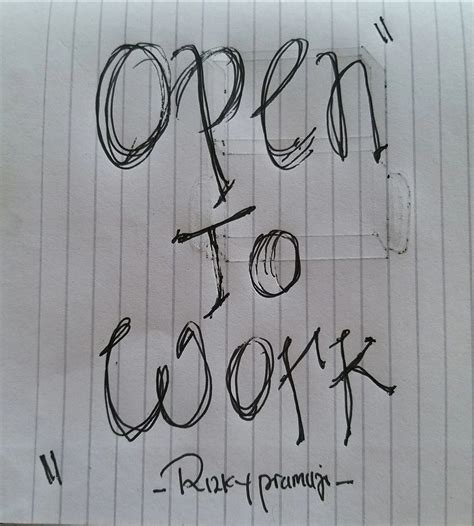 Open"
To
Work
" -Rizky pramuji-